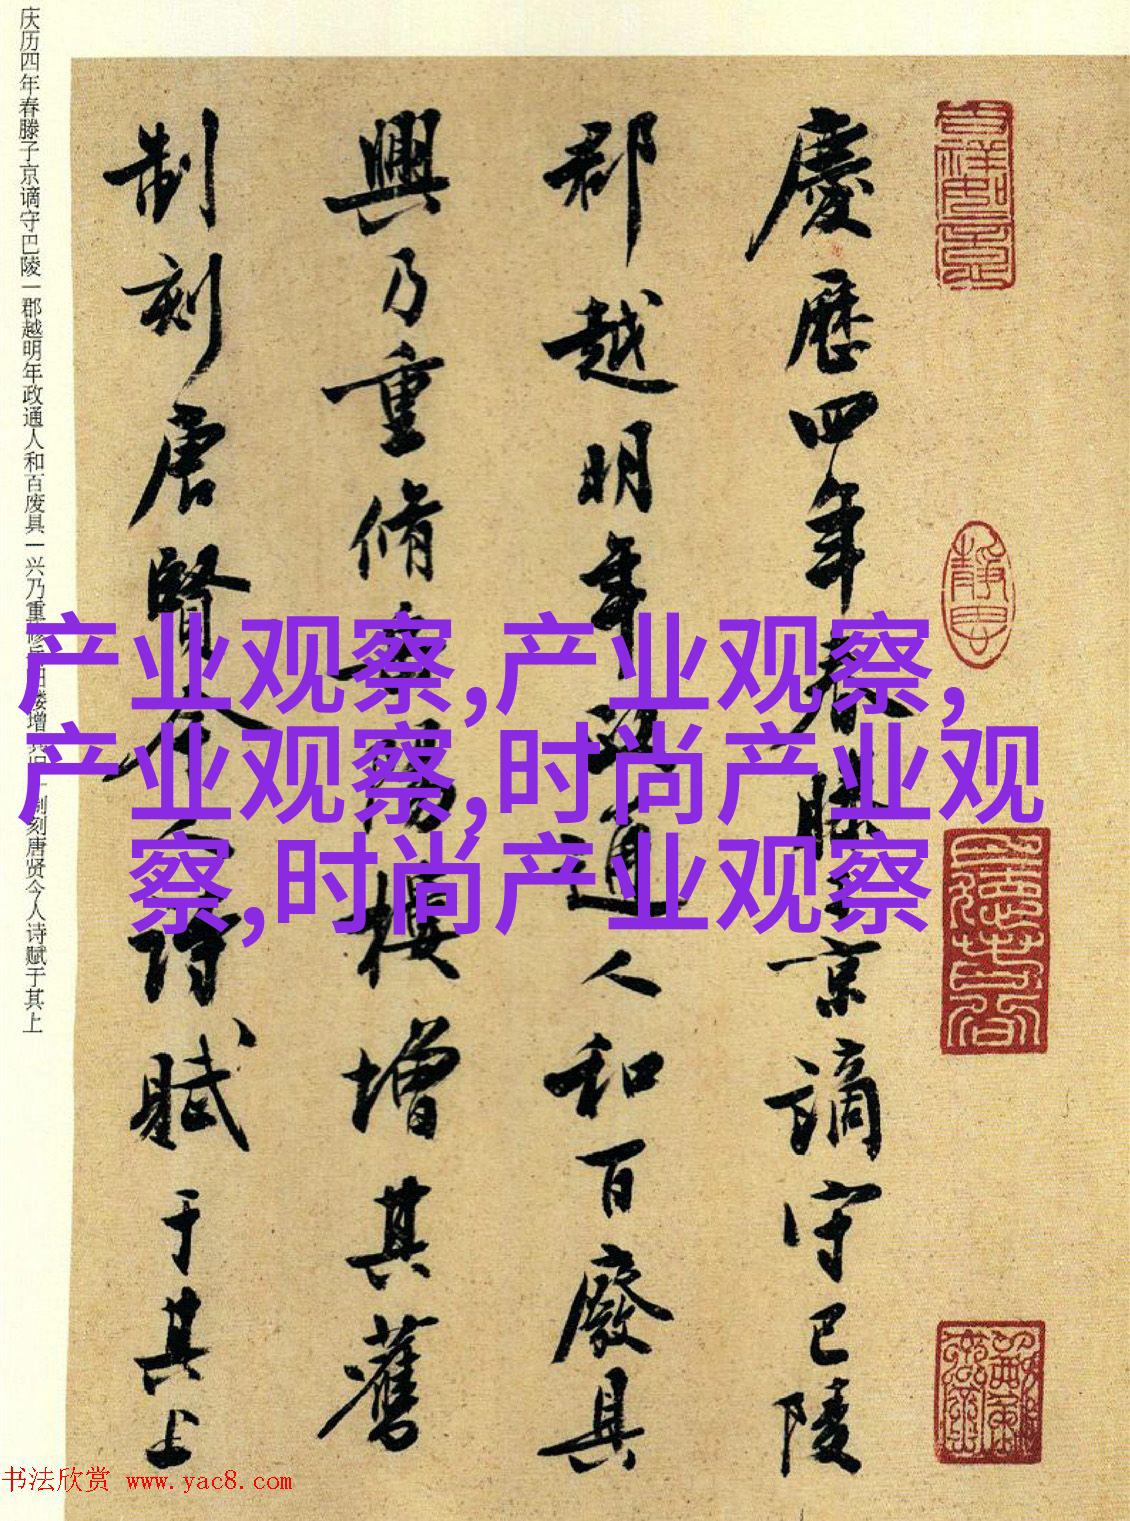 慶歷四年春滕子京謫守巴陵
郡越明年政通人和百廢具
興乃重脩岳陽樓增其舊
制刻唐賢今人詩賦于其上
庆历四年春滕子京谪守巴陵一郡越明年政通人和百废具一兴乃重修岳阳楼增其旧一制刻唐贤今人诗赋于其上
产业观察,产业观察,
产业观察,时尚产业观
察,时尚产业观察
书法欣赏 www.yac8.com